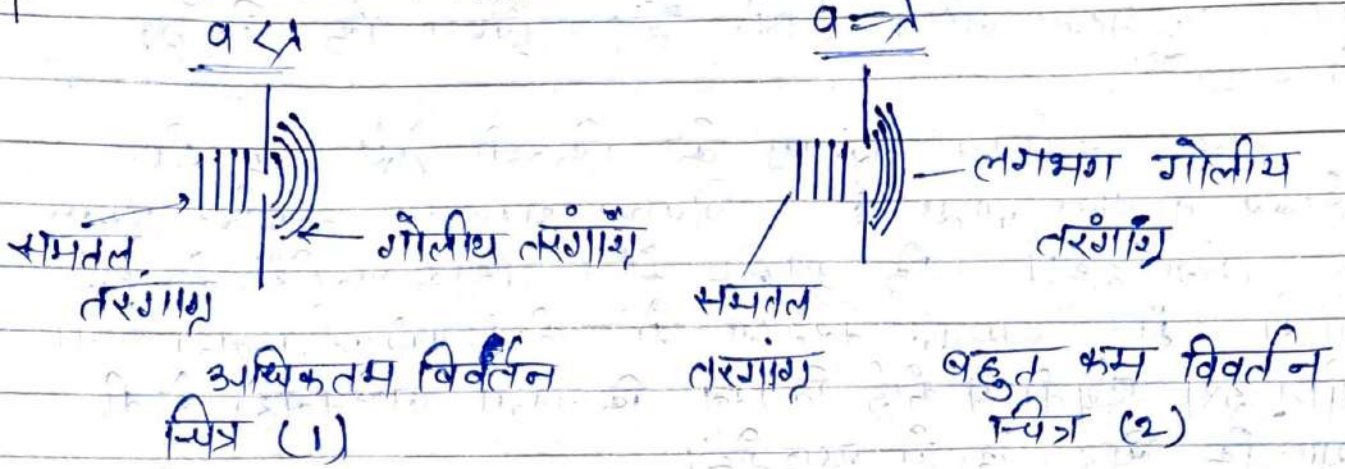 a<λ
a=λ
समतल तरंगाग्र
गोलीय तरंगाग्र
समतल तरंगाग्र
लगभग गोलीय
तरंगाग्र
अधिकतम विवर्तन
चित्र (1)
बहुत कम विवर्तन
चित्र (2)